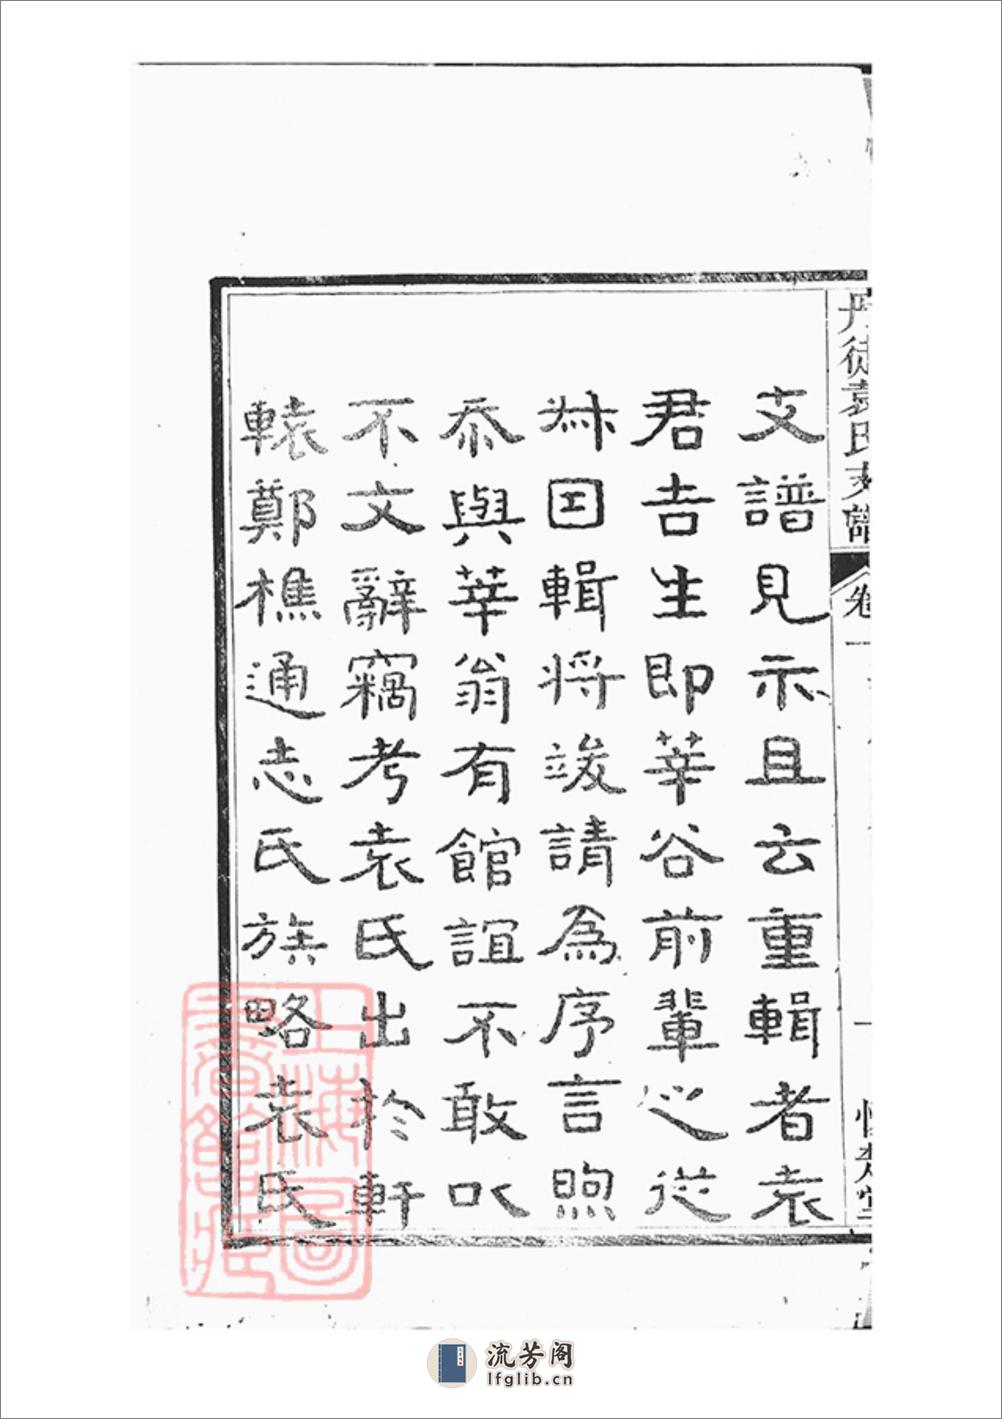 丹徒袁氏支譜
卷一
一
支譜見示且云重輯者袁
君吉生即莘谷前輩之從
叔囙輯將竣請為序言煦
忝與莘翁有館誼不敢以
不文辭竊考袁氏出於軒
轅鄭樵通志氏族略袁氏
上海圖
書館藏
流芳阁
lfglib.cn